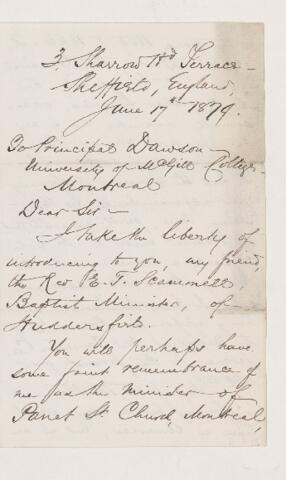 3 Sharrow Rd Terrace -
Sheffield, England,
June 17th 1879.
To Principal Dawson -
University of McGill College
Montreal
Dear Sir -
I take the liberty of
introducing to you, my friend,
the Rev E. T. Scammell,
Baptist Minister, of
Huddersfield.
You will perhaps have
some faint remembrance of
me as the Minister of
Panet St. Church, Montreal,